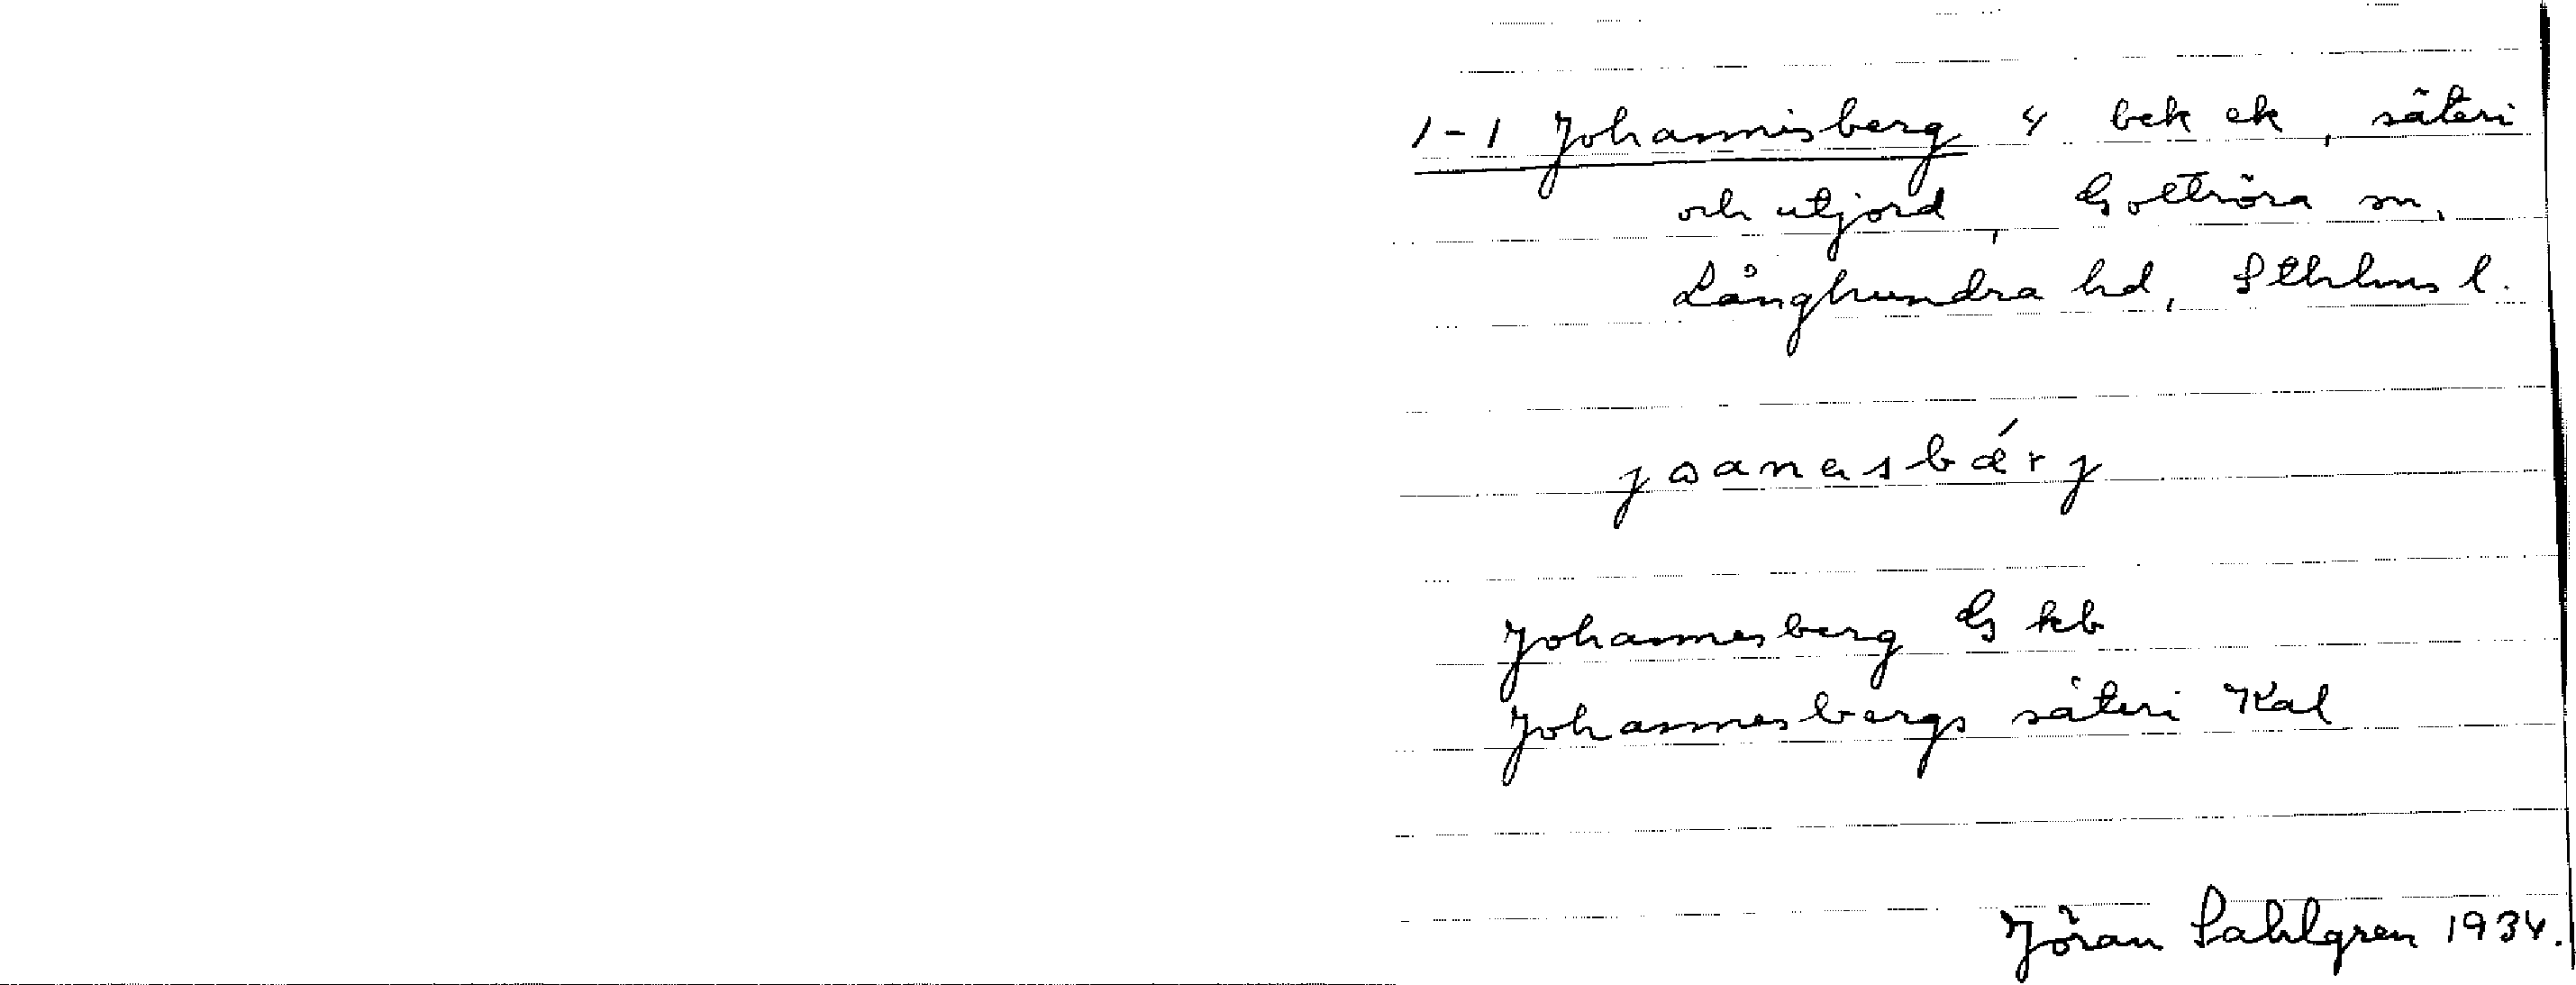 1-1 Johannisberg 4 bek ek, säteri
och utjord, Gottröra sn,
Långhundra hd, Sthlms l.
jɷanasbǽrj
Johannesberg G kb
Johannesbergs säteri Kal
Jöran Sahlgren 1934.